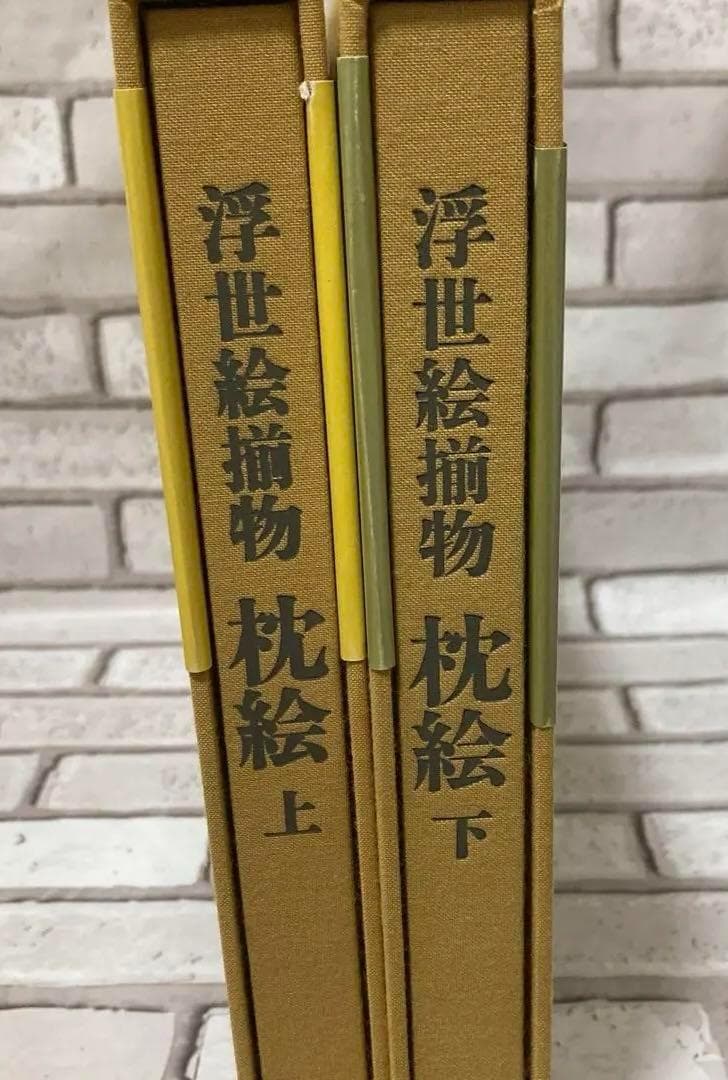 浮世絵揃物 枕絵 上
浮世絵揃物 枕絵 下